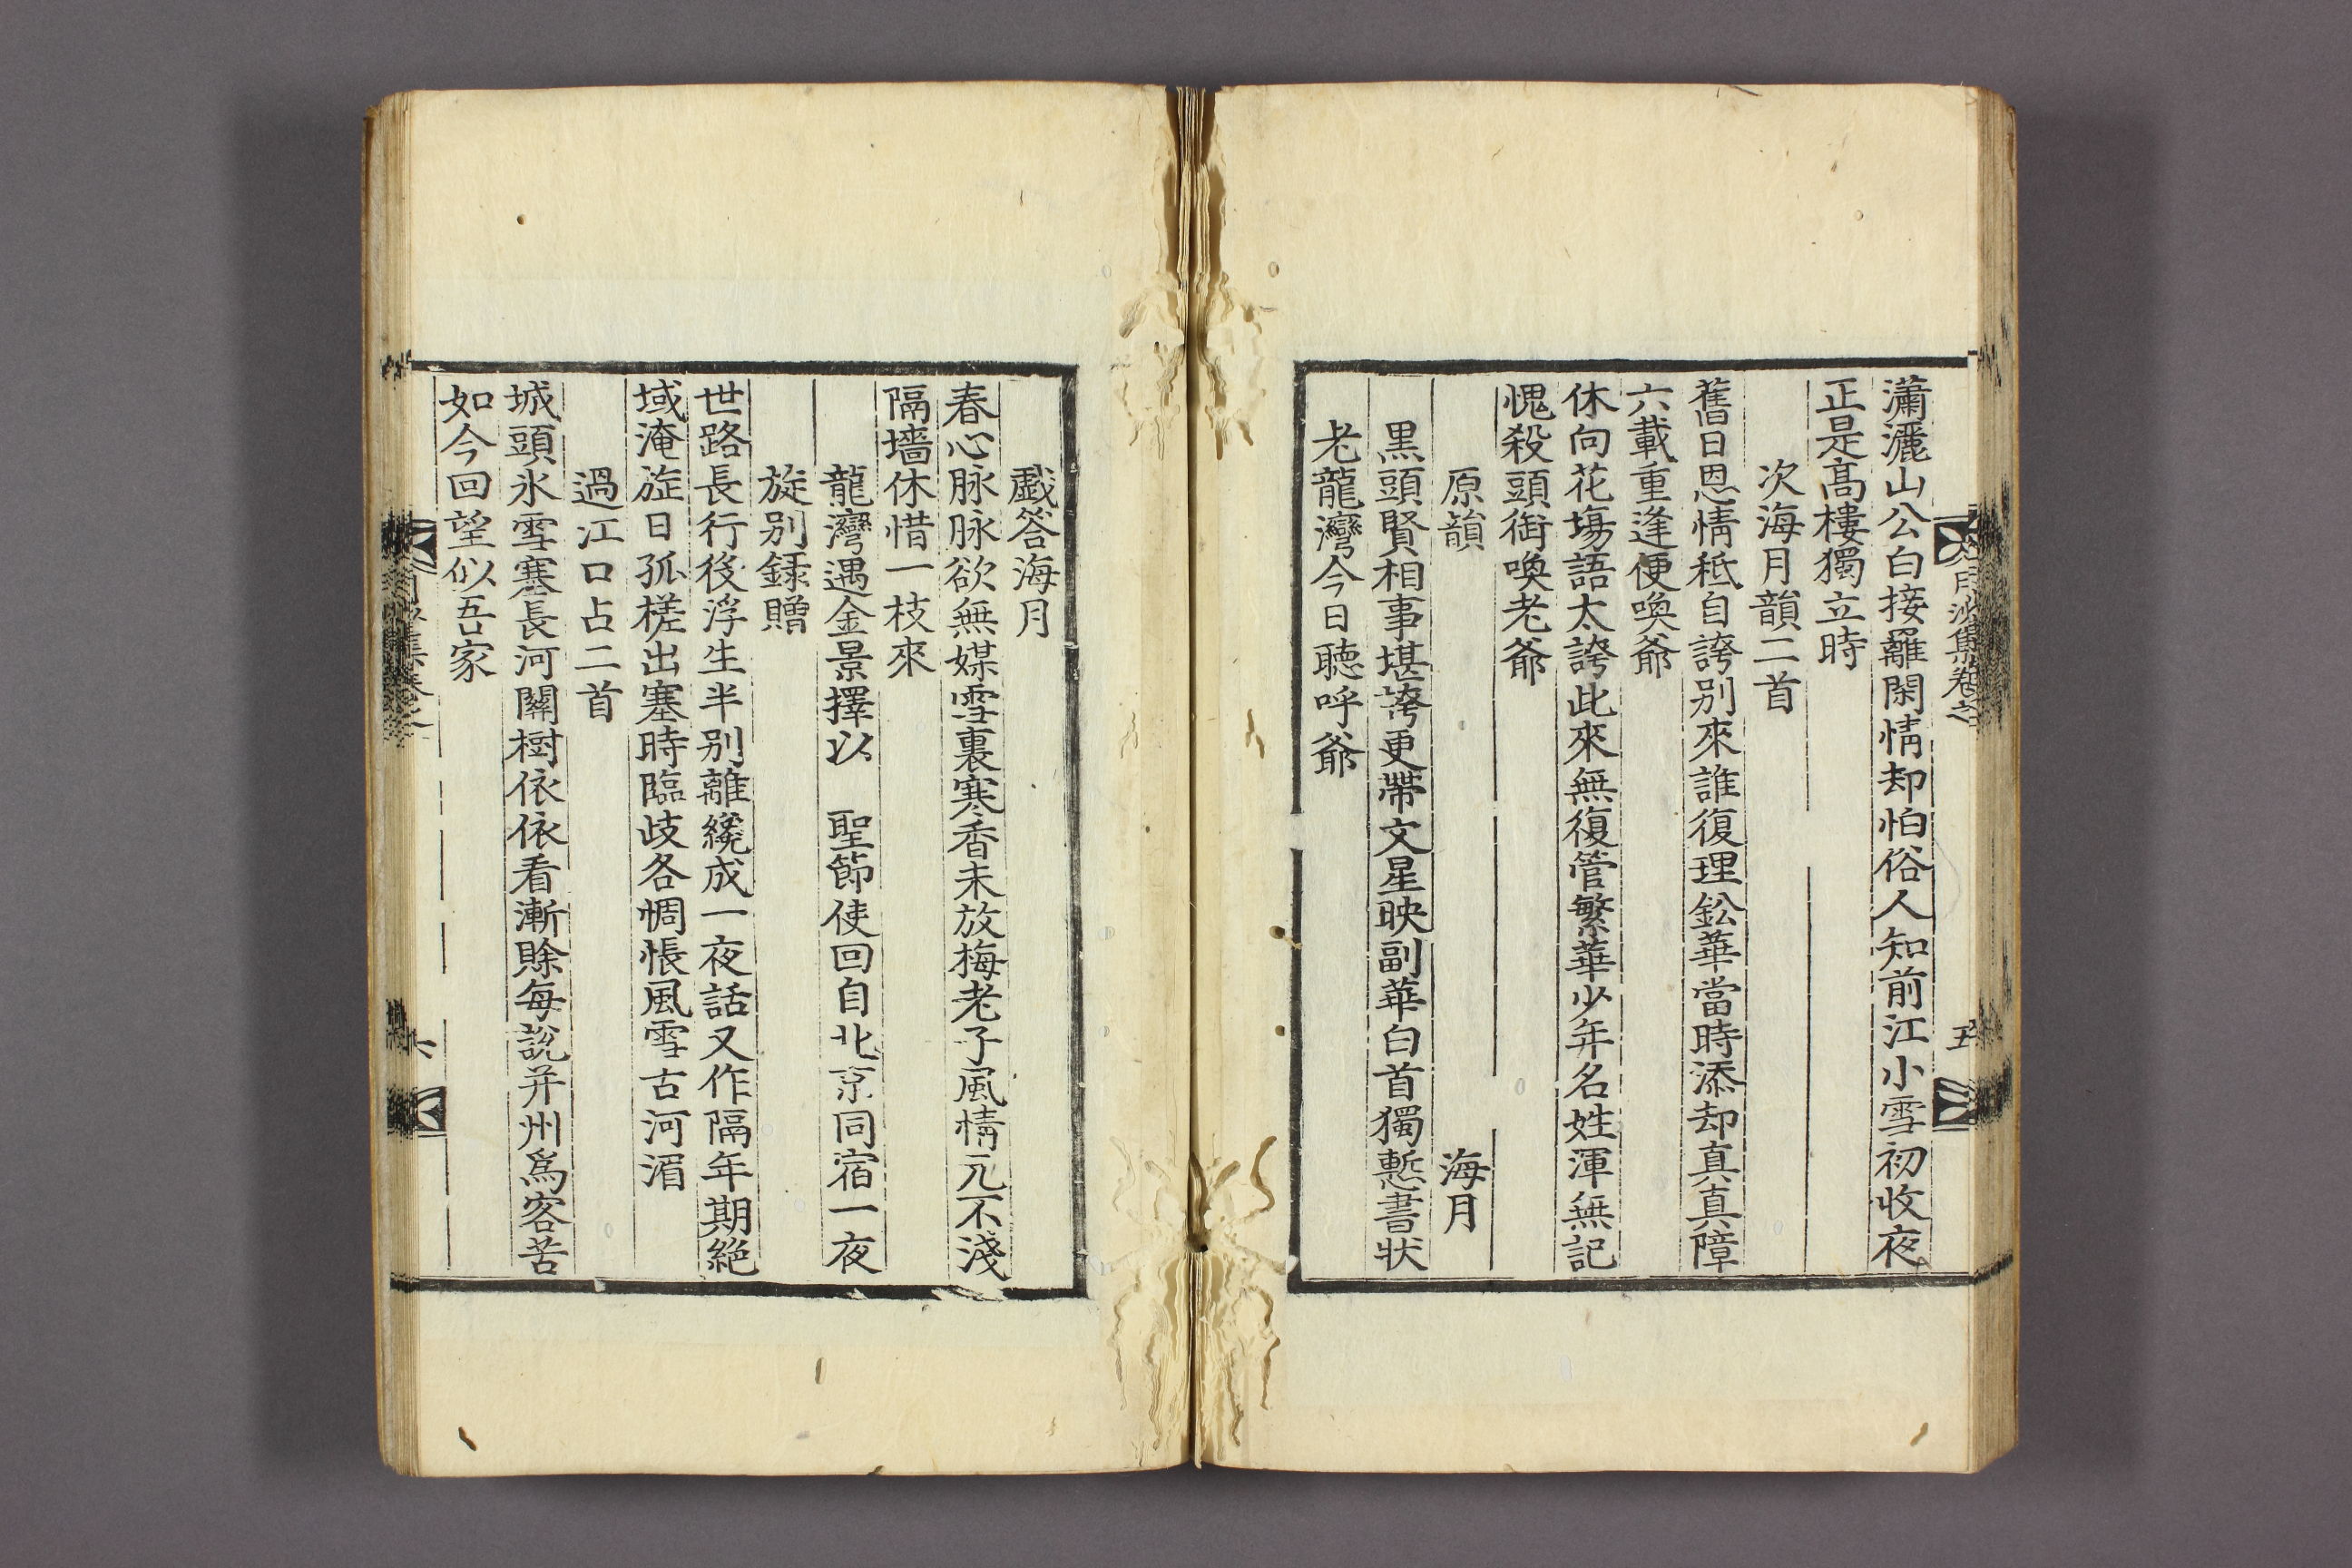 月沙集卷之
五
瀟灑山公白接䍦閑情却怕俗人知前江小雪初收夜
正是高樓獨立時
次海月韻二首
舊日恩情秪自誇別來誰復理鈆華當時添却真真障
六載重逢便喚爺
休向花場語太誇此來無復管繁華少年名姓渾無記
愧殺頭銜喚老爺
原韻 海月
黑頭賢相事堪誇更帶文星映副華白首獨慙書狀
老龍灣今日聽呼爺
戲答海月
春心脉脉欲無媒雪裏寒香未放梅老子風情元不淺
隔墻休惜一枝來
龍灣遇金景擇以 聖節使回自北京同宿一夜
旋別錄贈
世路長行後浮生半別離纔成一夜話又作隔年期絕
域淹旋日孤槎出塞時臨歧各惆悵風雪古河湄
過江口占二首
城頭氷雪塞長河關樹依依看漸賒每說并州爲客苦
如今回望似吾家
六